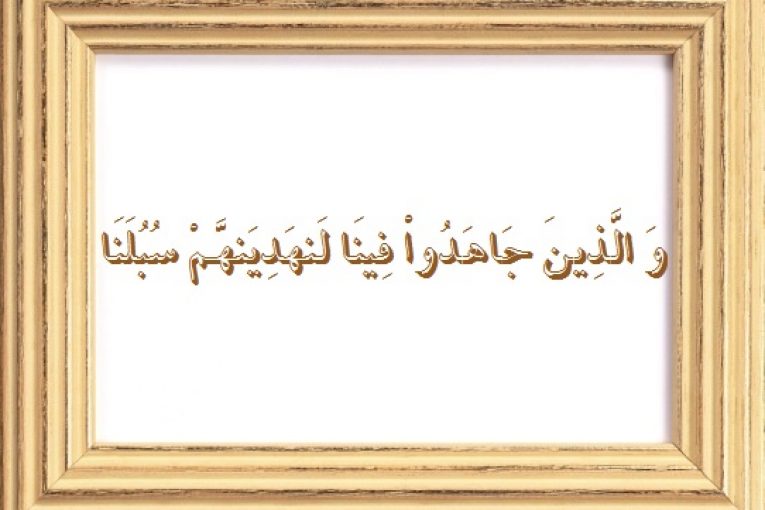 وَ الَّذِينَ جَاهَدُواْ فِينَا لَنهَدِيَنهَّمْ سُبُلَنَا